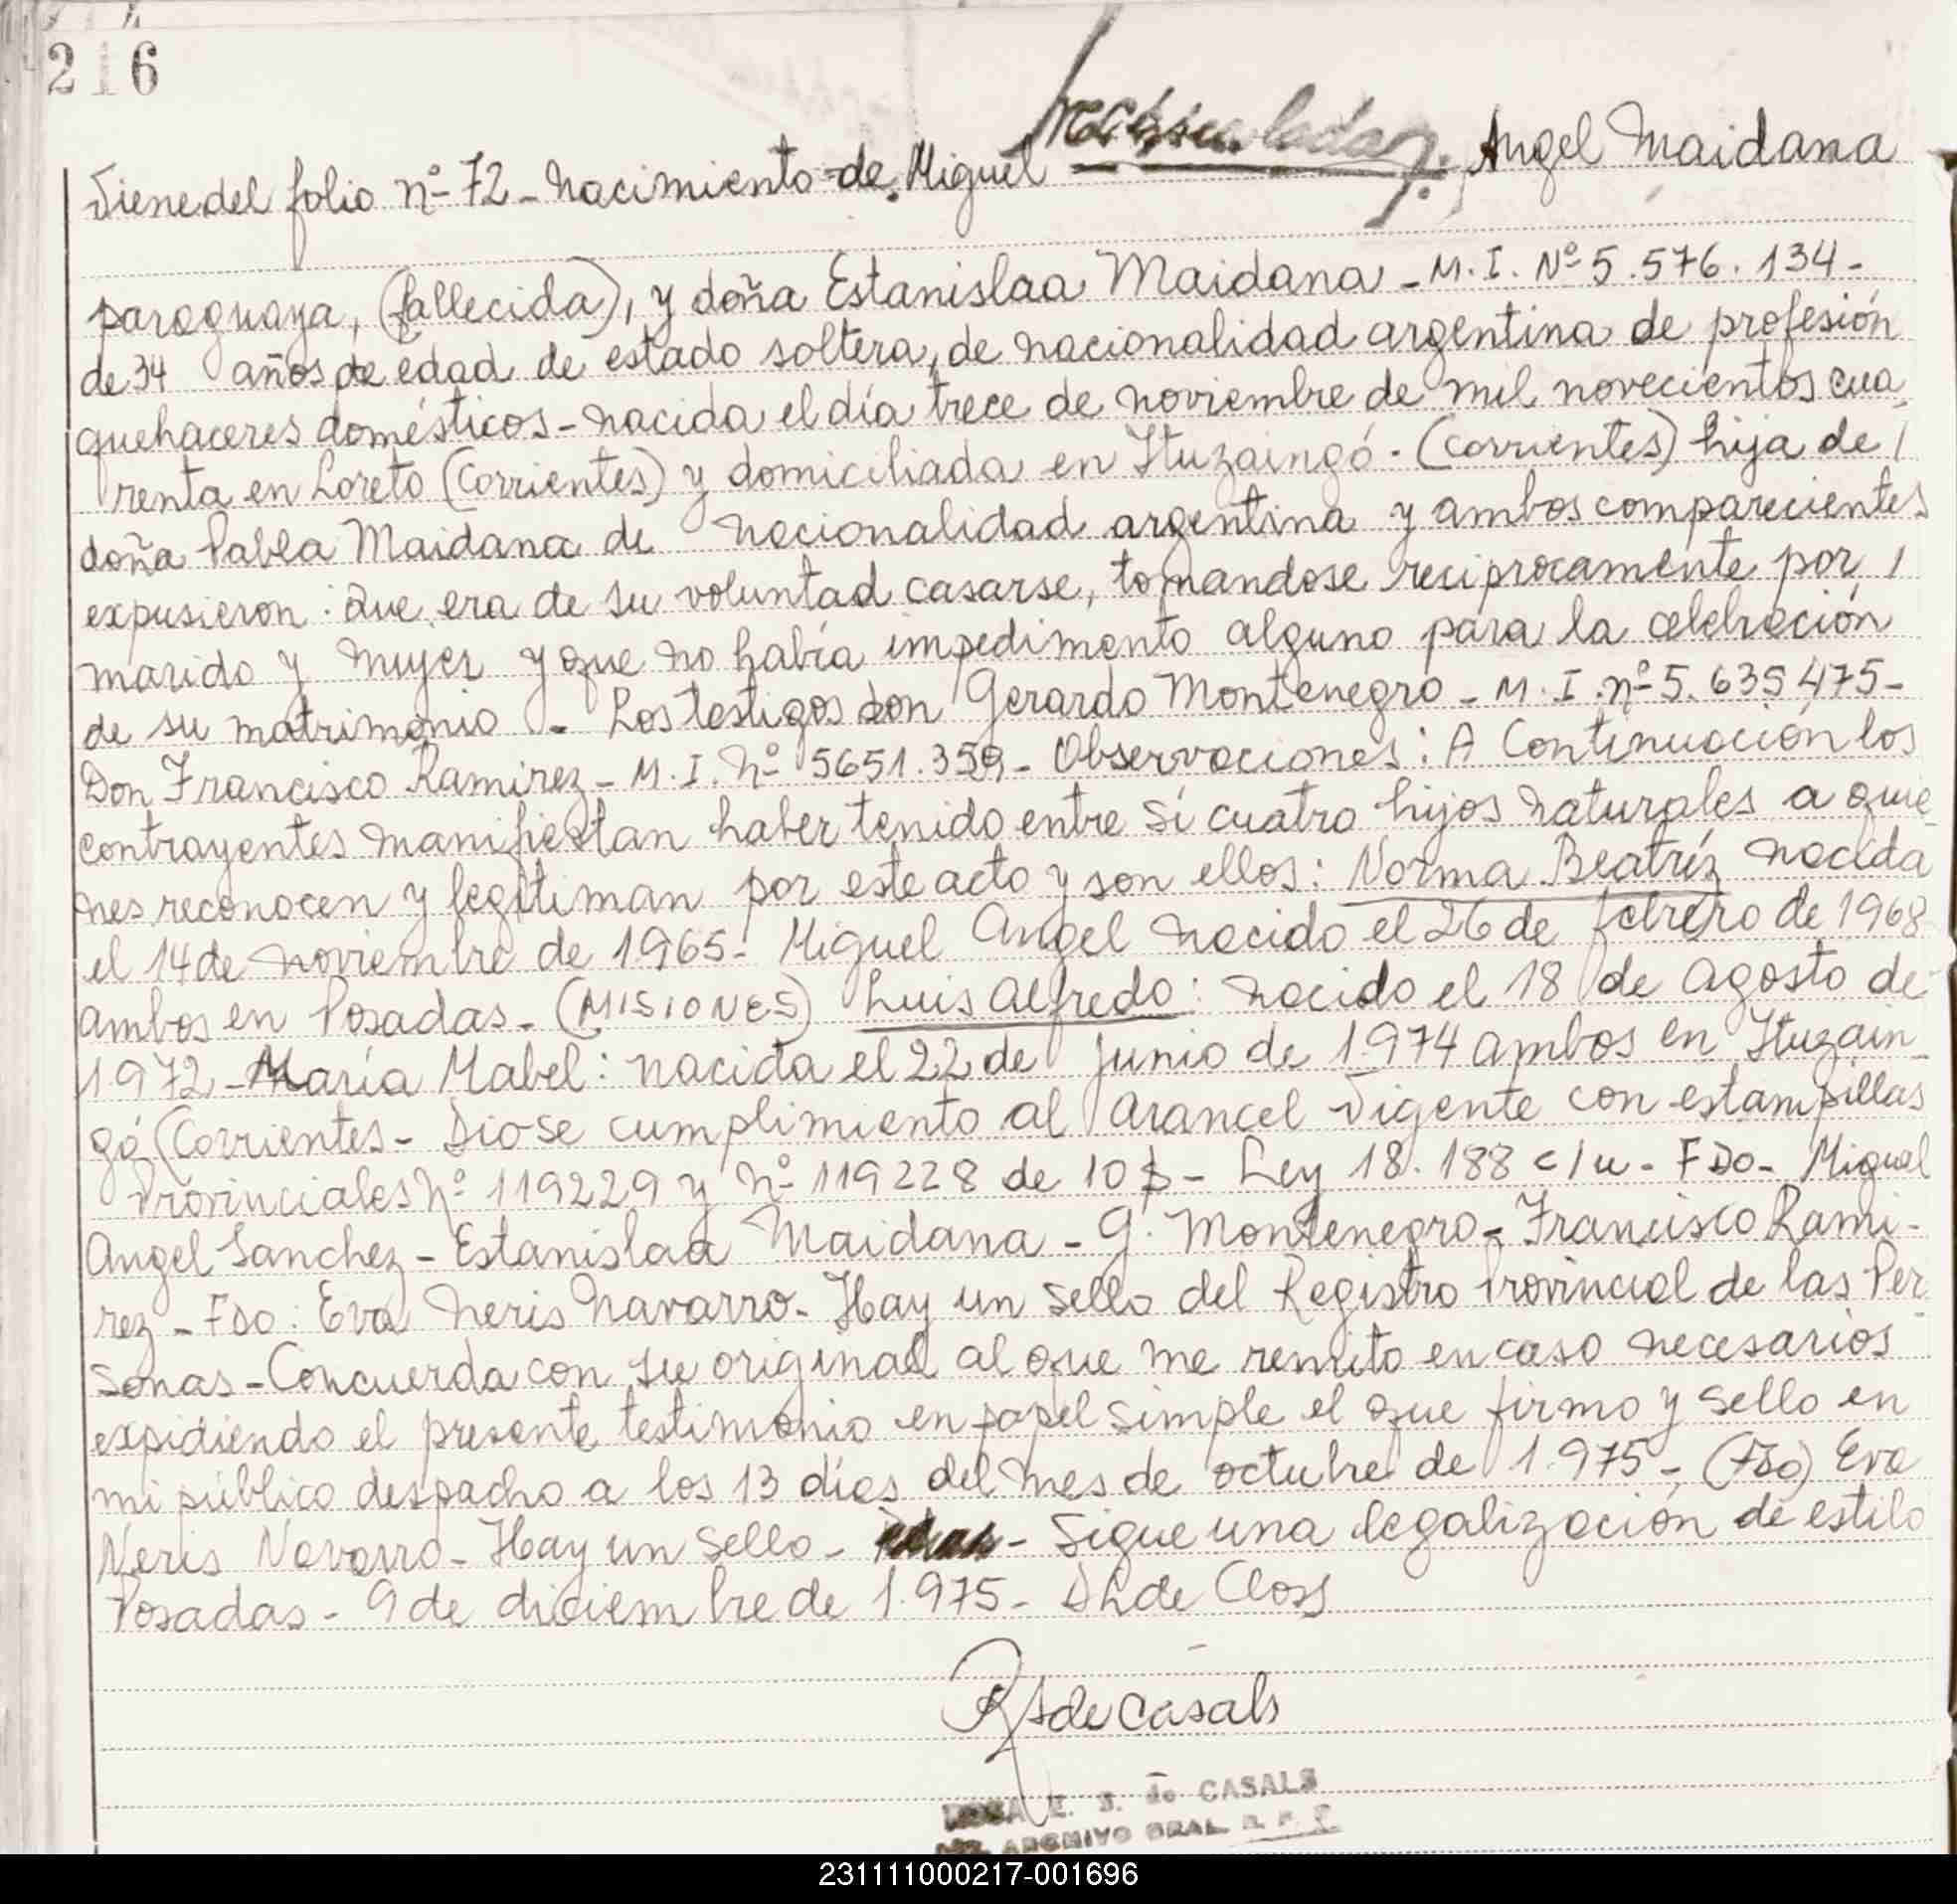 216
Viene del folio nº 72 - nacimiento de Miguel Angel Maidana
paraguaya, (fallecida), y doña Estanislaa Maidana - M. I. Nº 5.576.134 -
de 34 años de edad de estado soltera, de nacionalidad argentina de profesión
quehaceres domésticos - nacida el día trece de noviembre de mil novecientos cua
renta en Loreto (Corrientes) y domiciliada en Ituzaingó - (Corrientes) hija de /
doña Pabla Maidana de nacionalidad argentina y ambos comparecientes
expusieron: Que era de su voluntad casarse, tomandose reciprocamente por /
marido y mujer y que no había impedimento alguno para la celebración
de su matrimonio - Los testigos don Gerardo Montenegro - M. I. nº 5.635 475 -
Don Francisco Ramirez - M. I. Nº 5651.359 - Observaciones: A Continuación los
contrayentes manifiestan haber tenido entre sí cuatro hijos naturales a quie_
nes reconocen y legitiman por este acto y son ellos: Norma Beatríz nacida
el 14 de noviembre de 1965 - Miguel Angel nacido el 26 de febrero de 1968
ambos en Posadas - (MISIONES) Luis Alfredo: nacido el 18 de agosto de
1.972 - María Mabel: nacida el 22 de junio de 1.974 ambos en Ituzain_
gó (Corrientes - Diose cumplimiento al arancel vigente con estampillas
Provinciales Nº 119229 y Nº 119228 de 10 $ - Ley 18.188 c/u - FDo - Miguel
Angel Sanchez - Estanislaa Maidana - G. Montenegro - Francisco Rami -
rez - FDo: Eva Neris Navarro - Hay un sello del Registro Provincial de las Per
sonas - Concuerda con su original al que me remito en caso necesarios
expidiendo el presente testimonio en papel simple el que firmo y sello en
mi público despacho a los 13 días del mes de octubre de 1.975 - (FDo) Eva
Neris Navarro - Hay un sello - Sigue una legalización de estilo
Posadas - 9 de diciembre de 1.975 - de Closs
RS de Casals
E. S. de CASALS
ARCHIVO GRAL. R. P. P.
231111000217-001696